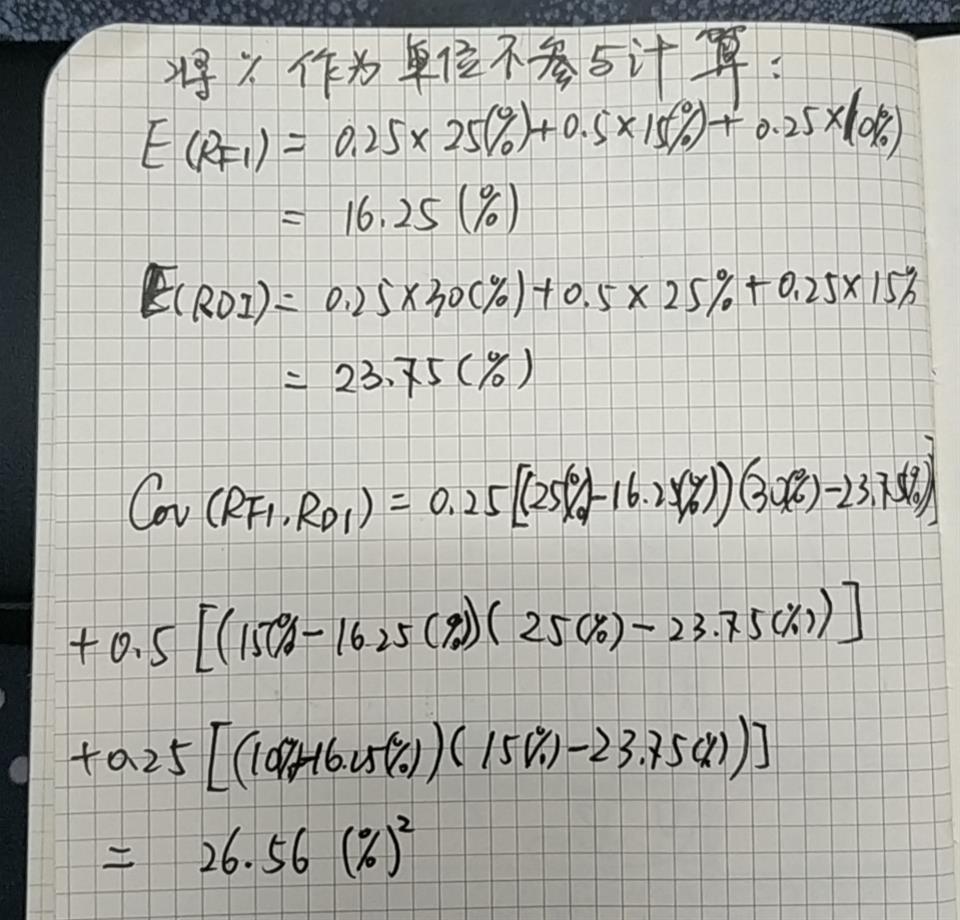 将%作为单位不参与计算:
E(RF1) = 0.25×25(%)+0.5×15(%)+0.25×10(%)
= 16.25(%)
E(RDI)= 0.25×30(%)+0.5×25%+0.25×15%
= 23.75(%)
Cov(RF1.RD1) = 0.25[(25(%)-16.25(%))(30(%)-23.75(%))]
+0.5[(15(%)-16.25(%))(25(%)-23.75(%))]
+0.25[(10(%)-16.25(%))(15(%)-23.75(%))]
= 26.56 (%)²